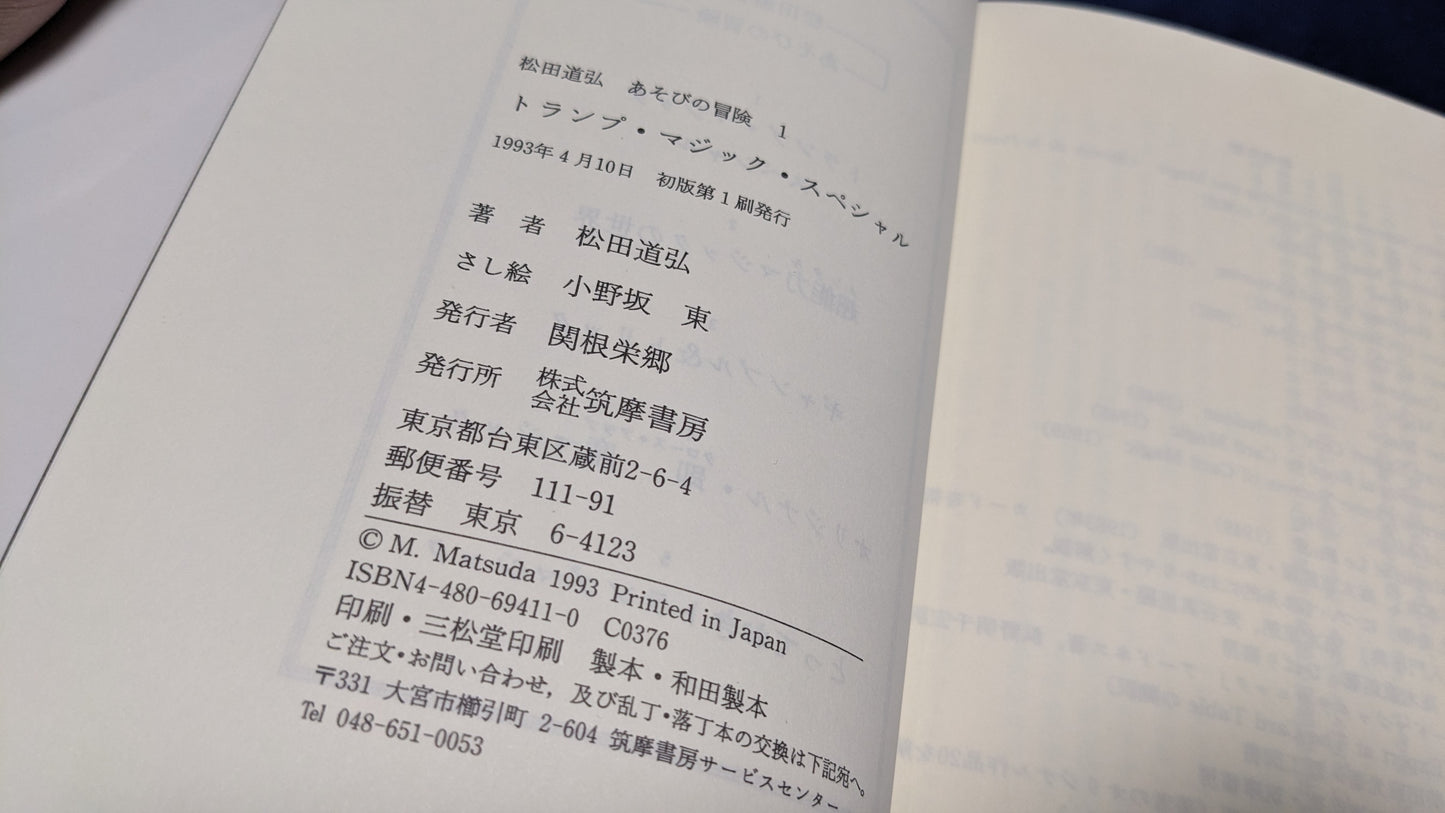 松田道弘　あそびの冒険　1
トランプ・マジック・スペシャル
1993年4月10日　初版第1刷発行
著　者　松田道弘
さし絵　小野坂　東
発行者　関根栄郷
発行所　株式会社筑摩書房
東京都台東区蔵前2-6-4
郵便番号　111-91
振替　東京　6-4123
© M. Matsuda 1993 Printed in Japan
ISBN4-480-69411-0　C0376
印刷・三松堂印刷　製本・和田製本
ご注文・お問い合わせ，及び乱丁・落丁本の交換は下記宛へ。
〒331 大宮市櫛引町 2-604 筑摩書房サービスセンター
Tel 048-651-0053